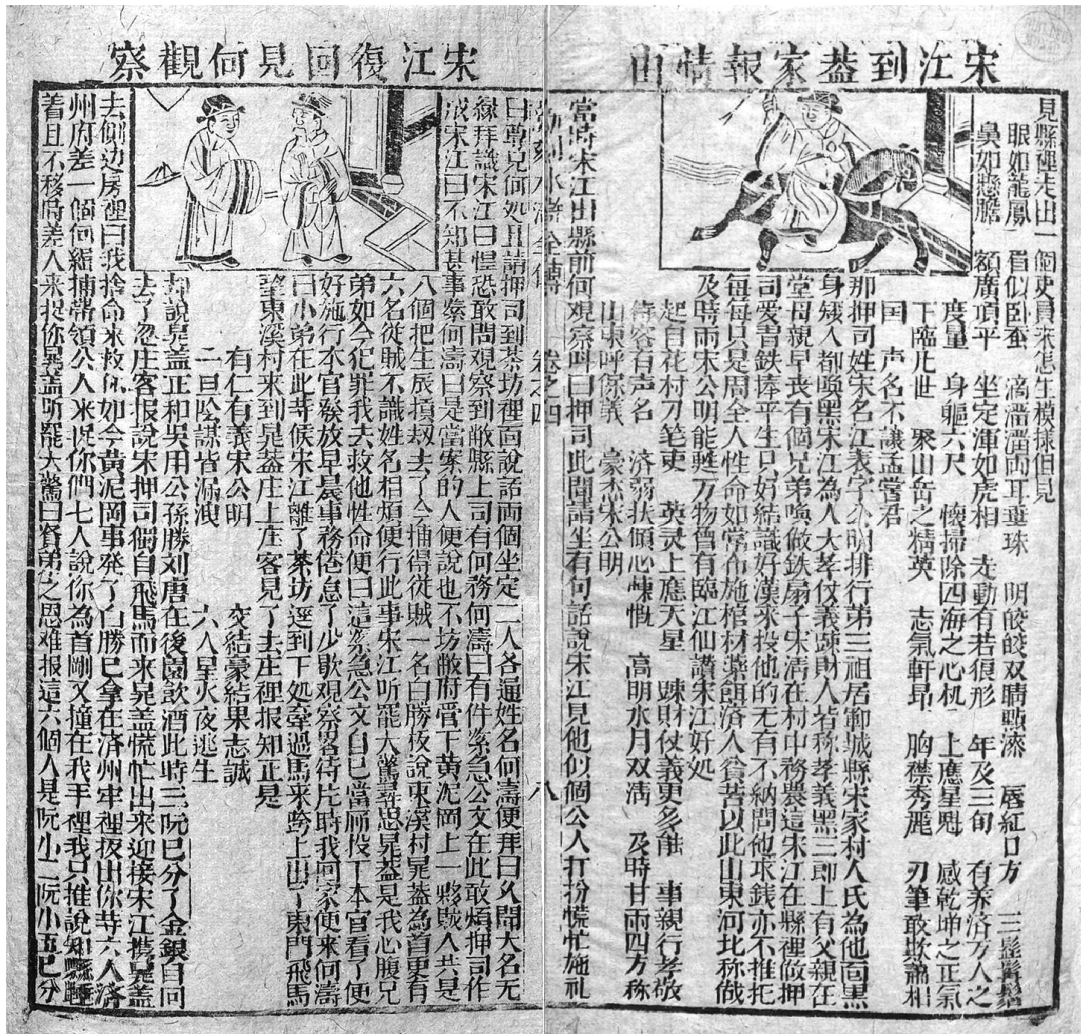 宋江到盖家報情由
見縣裡走出一個史員來怎生模樣但見
眼如龍鳳 眉似卧蚕 滴溜溜両耳垂珠 明皎皎双睛點漆 唇紅口方 三髭
鼻如懸膽 額廣項平 坐定渾如虎相 走動有若很形 年及三旬 有养济万人之
度量 身軀六尺 懷掃除四海之心机 上應星魁 感乾坤之正氣
下臨凢世 聚山岳之精英 志氣軒昂 胸襟秀麗 刃筆敢欺蕭相
国 声名不讓孟嘗君
那押司姓宋名江表字公明排行第三祖居鄆城縣宋家村人氏為他靣黑
身矮人都喚黑宋江為人大孝仗義踈財人皆称孝義黑三郎上有父親在
堂母親早丧有個兄弟喚做鉄扇子宋清在村中務農這宋江在縣裡做押
司爱習鉄捧平生只好結識好漢來投他的无有不納問他求銭亦不推托
每每只是周全人性命如常布施棺材薬餌済人貧苦以此山東河北称做
及時雨宋公明能甦万物曾有臨江仙讚宋江好処
起自花村刀笔吏 英灵上應天星 踈財仗義更多能 事親行孝敬
待客有声名 済弱扶傾心慷慨 高明水月双清 及時甘雨四方称
山東呼保義 豪杰宋公明
當時宋江出縣前何观察呌曰押司此間請坐有句話說宋江見他似個公人打扮慌忙施礼
水滸全傳 卷之四 八
宋江復回見何觀察
曰尊兄何処且請押司到茶坊裡靣說話両個坐定二人各通姓名何濤便拜曰久聞大名无
緣拜識宋江曰惶恐敢問观察到敝縣上司有何務何濤曰有件紧急公文在此敢煩押司作
成宋江曰不知甚事紧何濤曰是當案的人便說也不坊敝府管下黄泥岡上一夥賊人共是
八個把生辰損刼去了今捕得從賊一名曰勝扳說東溪村晁盖為首更有
六名從賊不識姓名相煩便行此事宋江听罷大驚尋思晁盖是我心腹兄
弟如今犯罪我去救他性命便曰這紧急公文自巳當厛投丁本官看了便
好施行本官發放早晨事務倦怠了少歇观察畧待片時我回家便來何濤
曰小弟在此等候宋江離了茶坊逕到下処牽過馬来跨上出了東門飛馬
望東溪村來到晁盖庄上庄客見了去庄裡报知正是
有仁有義宋公明 交結豪結果志誠
一旦陰謀皆漏洩 六人星火夜逃生
却說晁盖正和吳用公孫勝刘唐在後園飲酒此時三阮巳分了金銀自回
去了忽庄客报說宋押司獨自飛馬而来晁盖慌忙出来迎接宋江携晁盖
去侧边房裡曰我捨命來救你如今黄泥岡事發了白勝巳拿在済州牢裡扳出你等六人済
州府差一個何緝捕帶領公人來捉你們七人說你為首剛又撞在我手裡我只推說知縣睡
着且不移時差人来捉你晁盖听罷大驚曰賢弟之恩难报這六個人是阮小二阮小五巳分